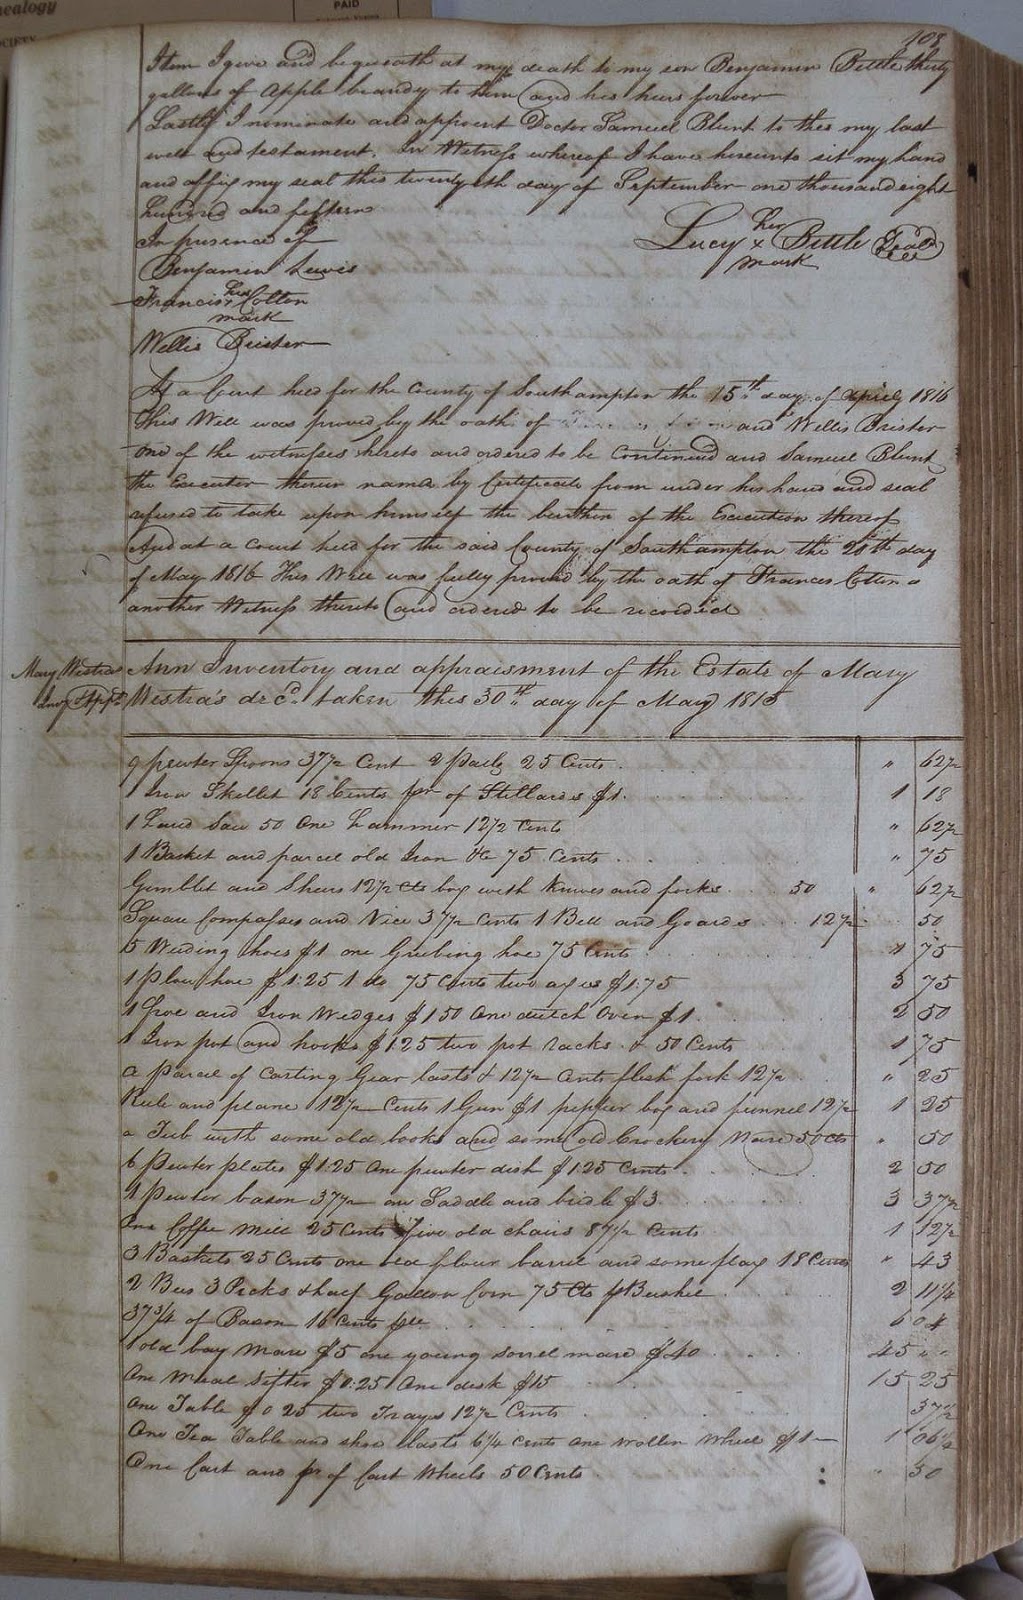 nealogy
PAID
OCIETY
103
Item I give and bequeath at my death to my son Benjamin Bittle thirty
gallons of Apple brandy to him and his heirs forever
Lastly I nominate and appoint Doctor Samuel Blunt to this my last
will and testament. In Witness whereof I have hereunto set my hand
and affix my seal this twentyeth day of September one thousand eight
hundred and fifteen
In presence of
Benjamin Lewis
Francis her Cotton
mark
Willis Brister
Lucy her x Bittle Seal
mark
At a Court held for the County of Southampton the 15th day of April 1816
This Will was proved by the oath of and Willis Brister
one of the witnesses hereto and ordered to be Continued and Samuel Blunt
the Executor therein named by Certificate from under his hand and seal
refused to take upon himself the burthen of the Execution thereof
And at a Court held for the said County of Southampton the 20th day
of May 1816 This Will was fully proved by the oath of Frances Cotton
another Witness thereto and ordered to be recorded
Mary Westras
Invy & Appt
Ann Inventory and appraisment of the Estate of Mary
Westra's decd. taken this 30th day of May 1815
9 pewter Spoons 37½ Cent 2 Pails 25 Cents " 62½
1 Iron Skillet 18 Cents pr of Stillards $1. 1 18
1 hand Saw 50 One hammer 12½ Cents " 62½
1 Basket and parcel old Iron &c 75 Cents " 75
Gimblet and Shears 12½ cts box with knives and forks 50 " 62½
Square Compasses and Vice 37½ Cents 1 Bell and Goards 12½ 50
5 Weeding hoes $1 one Grubing hoe 75 Cents 1 75
1 Plow hoe $1.25 1 do 75 Cents two axes $1.75 3 75
1 Froe and Iron Wedges $1 50 One dutch Oven $1. 2 50
1 Iron pot and hooks $1.25 two pot racks & 50 Cents 1 75
a Parcel of Carting Gear lasts & 12½ Cents flesh fork 12½ " 25
Rule and plane 12½ Cents 1 Gun $1 pepper box and funnel 12½ 1 25
a Tub with some old books and some old Crockery Ware 50 Cts " 50
6 Pewter plates $1.25 One pewter dish $1.25 Cents. 2 50
1 Pewter bason 37½ one Saddle and bridle $3 3 37½
One Coffee Mill 25 Cents Five old chairs 87½ Cents 1 12½
3 Baskets 25 Cents one old flour barrel and some flax 18 Cents " 43
2 Bus 3 Pecks & half Gallon Corn 75 Cts pr Bushel 2 11¼
37¾ of Bacon 16 Cents pr 6 04
1 old bay Mare $5 one young sorrel mare $40 45 " "
One Meal Sifter $0.25 One desk $15 15 25
One Table $0 25 two Trays 12½ Cents 37½
One Tea Table and shoe lasts 6¼ Cents one wollen Wheel $1 1 06¼
One Cart and pr of Cart Wheels 50 Cents " 50